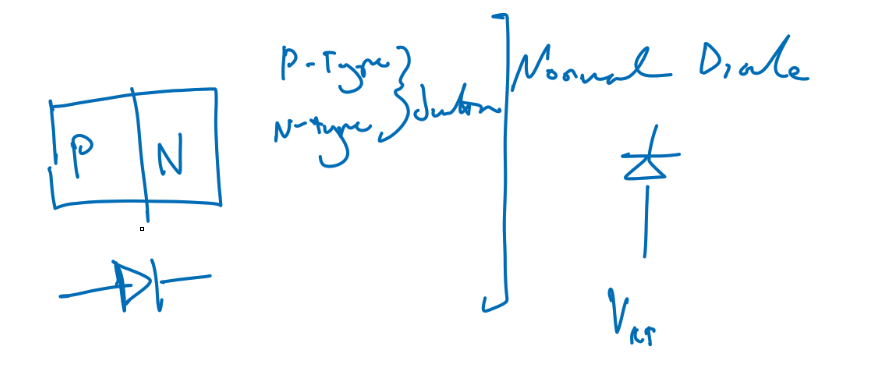 P N
P-Type
N-type
Junction
Normal Diode